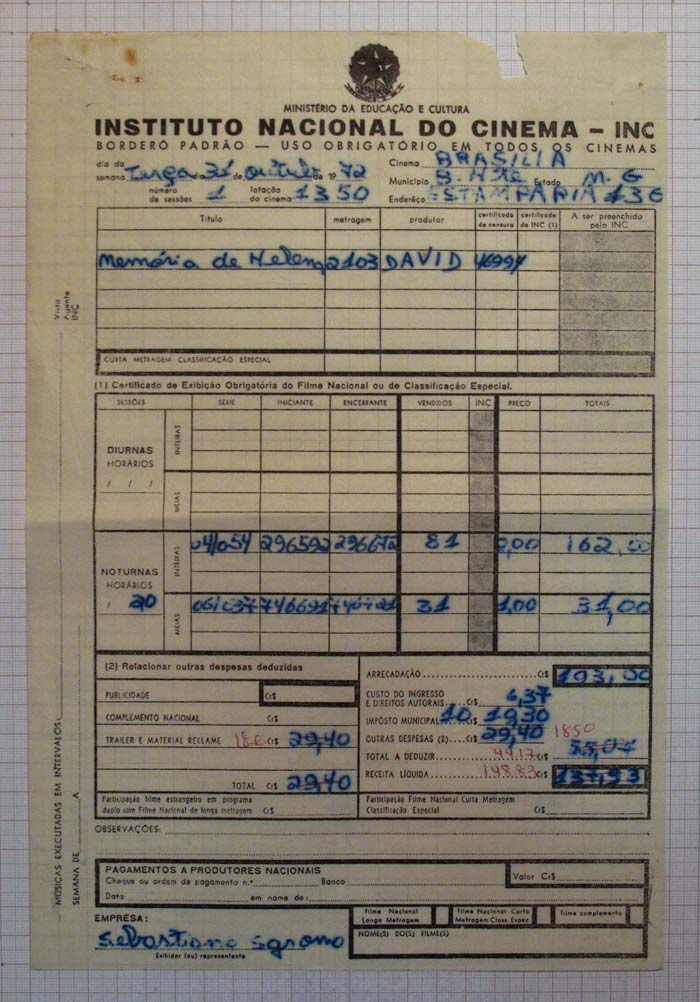 MINISTÉRIO DA EDUCAÇÃO E CULTURA
INSTITUTO NACIONAL DO CINEMA – INC
BORDERÔ PADRÃO — USO OBRIGATÓRIO EM TODOS OS CINEMAS
dia da semana Terça dia 31 de de 1972 Cinema BRASILIA
número de sessões 1 lotação do cinema 1350 Município B. Hte Estado M.G
Endereço ESTAMPARIA 136
Título metragem produtor certificado de censura certificado do INC (1) A ser preenchido pelo INC
Memória de Helena 2103 DAVID
CURTA METRAGEM CLASSIFICAÇÃO ESPECIAL
(1) Certificado de Exibição Obrigatória do Filme Nacional ou de Classificação Especial.
SESSÕES SERIE INICIANTE ENCERRANTE VENDIDOS INC PREÇO TOTAIS
DIURNAS
HORÁRIOS
/ / /
INTEIRAS
MEIAS
NOTURNAS
HORÁRIOS
/ 20
INTEIRAS 04/054 296592 296672 81 2,00 162,00
MEIAS 31 1,00 31,00
(2) Relacionar outras despesas deduzidas
PUBLICIDADE Cr$
COMPLEMENTO NACIONAL Cr$
TRAILER E MATERIAL RECLAME 18.6 Cr$ 29,40
TOTAL Cr$ 29,40
ARRECADAÇÃO Cr$ 193,00
CUSTO DO INGRESSO E DIREITOS AUTORAIS Cr$ 6,37
IMPÔSTO MUNICIPAL 10 19,30
OUTRAS DESPESAS (2) Cr$ 29,40 1850
TOTAL A DEDUZIR 44.17 Cr$
RECEITA LÍQUIDA 148.83 Cr$ 137,93
Participação filme estrangeiro em programa duplo com Filme Nacional de longa metragem Cr$
Participação Filme Nacional Curta Metragem Classificação Especial Cr$
OBSERVAÇÕES:
PAGAMENTOS A PRODUTORES NACIONAIS
Cheque ou ordem de pagamento n.º Banco Valor Cr$
Data em nome de:
EMPRÊSA:
Filme Nacional Longa Metragem Filme Nacional Curto Metragem Class. Espec Filme complemento
Sebastiano Sgromo
NOME(S) DO(S) FILME(S)
Exibidor (ou) representante
Visto Agente INC
MÚSICAS EXECUTADAS EM INTERVALOS:
SEMANA DE A